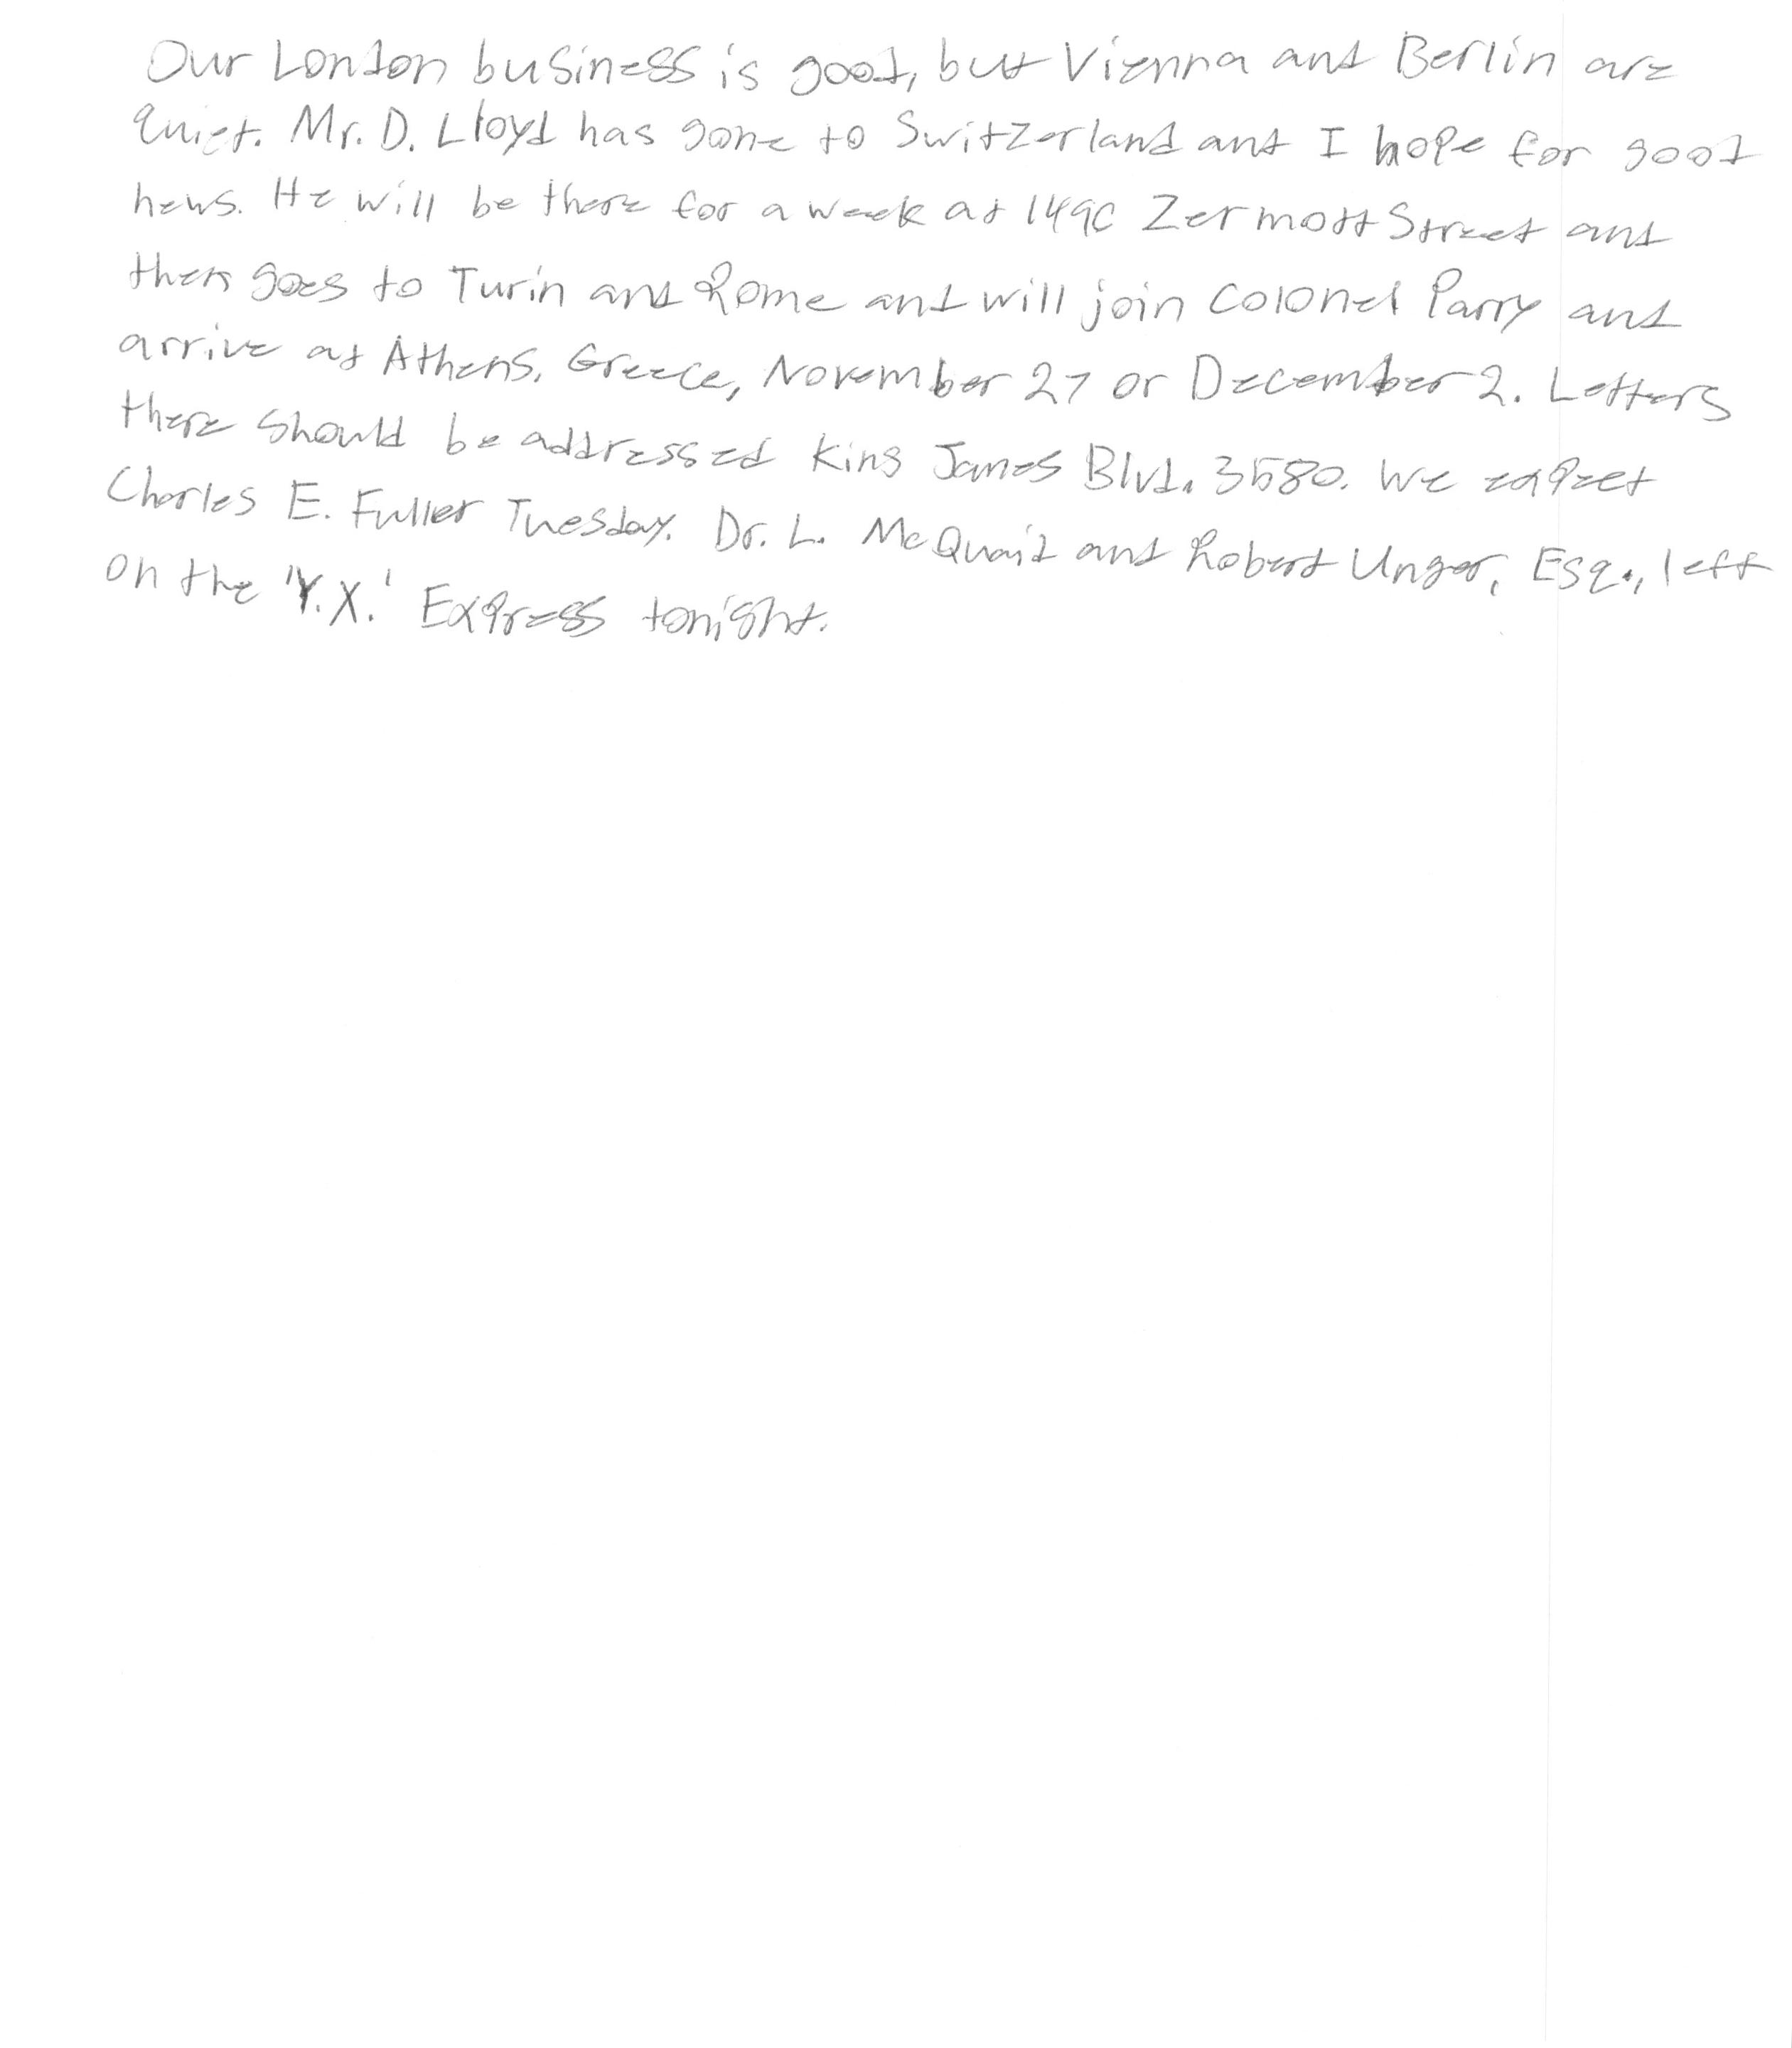 Our London business is good, but Vienna and Berlin are
quiet. Mr. D. Lloyd has gone to Switzerland and I hope for good
news. He will be there for a week at 1490 Zermott Street and
then goes to Turin and Rome and will join Colonel Parry and
arrive at Athens, Greece, November 27 or December 2. Letters
there should be addressed King James Blvd. 3580. We expect
Charles E. Fuller Tuesday. Dr. L. McQuaid and Robert Unger, Esq., left
on the 'Y.X.' Express tonight.